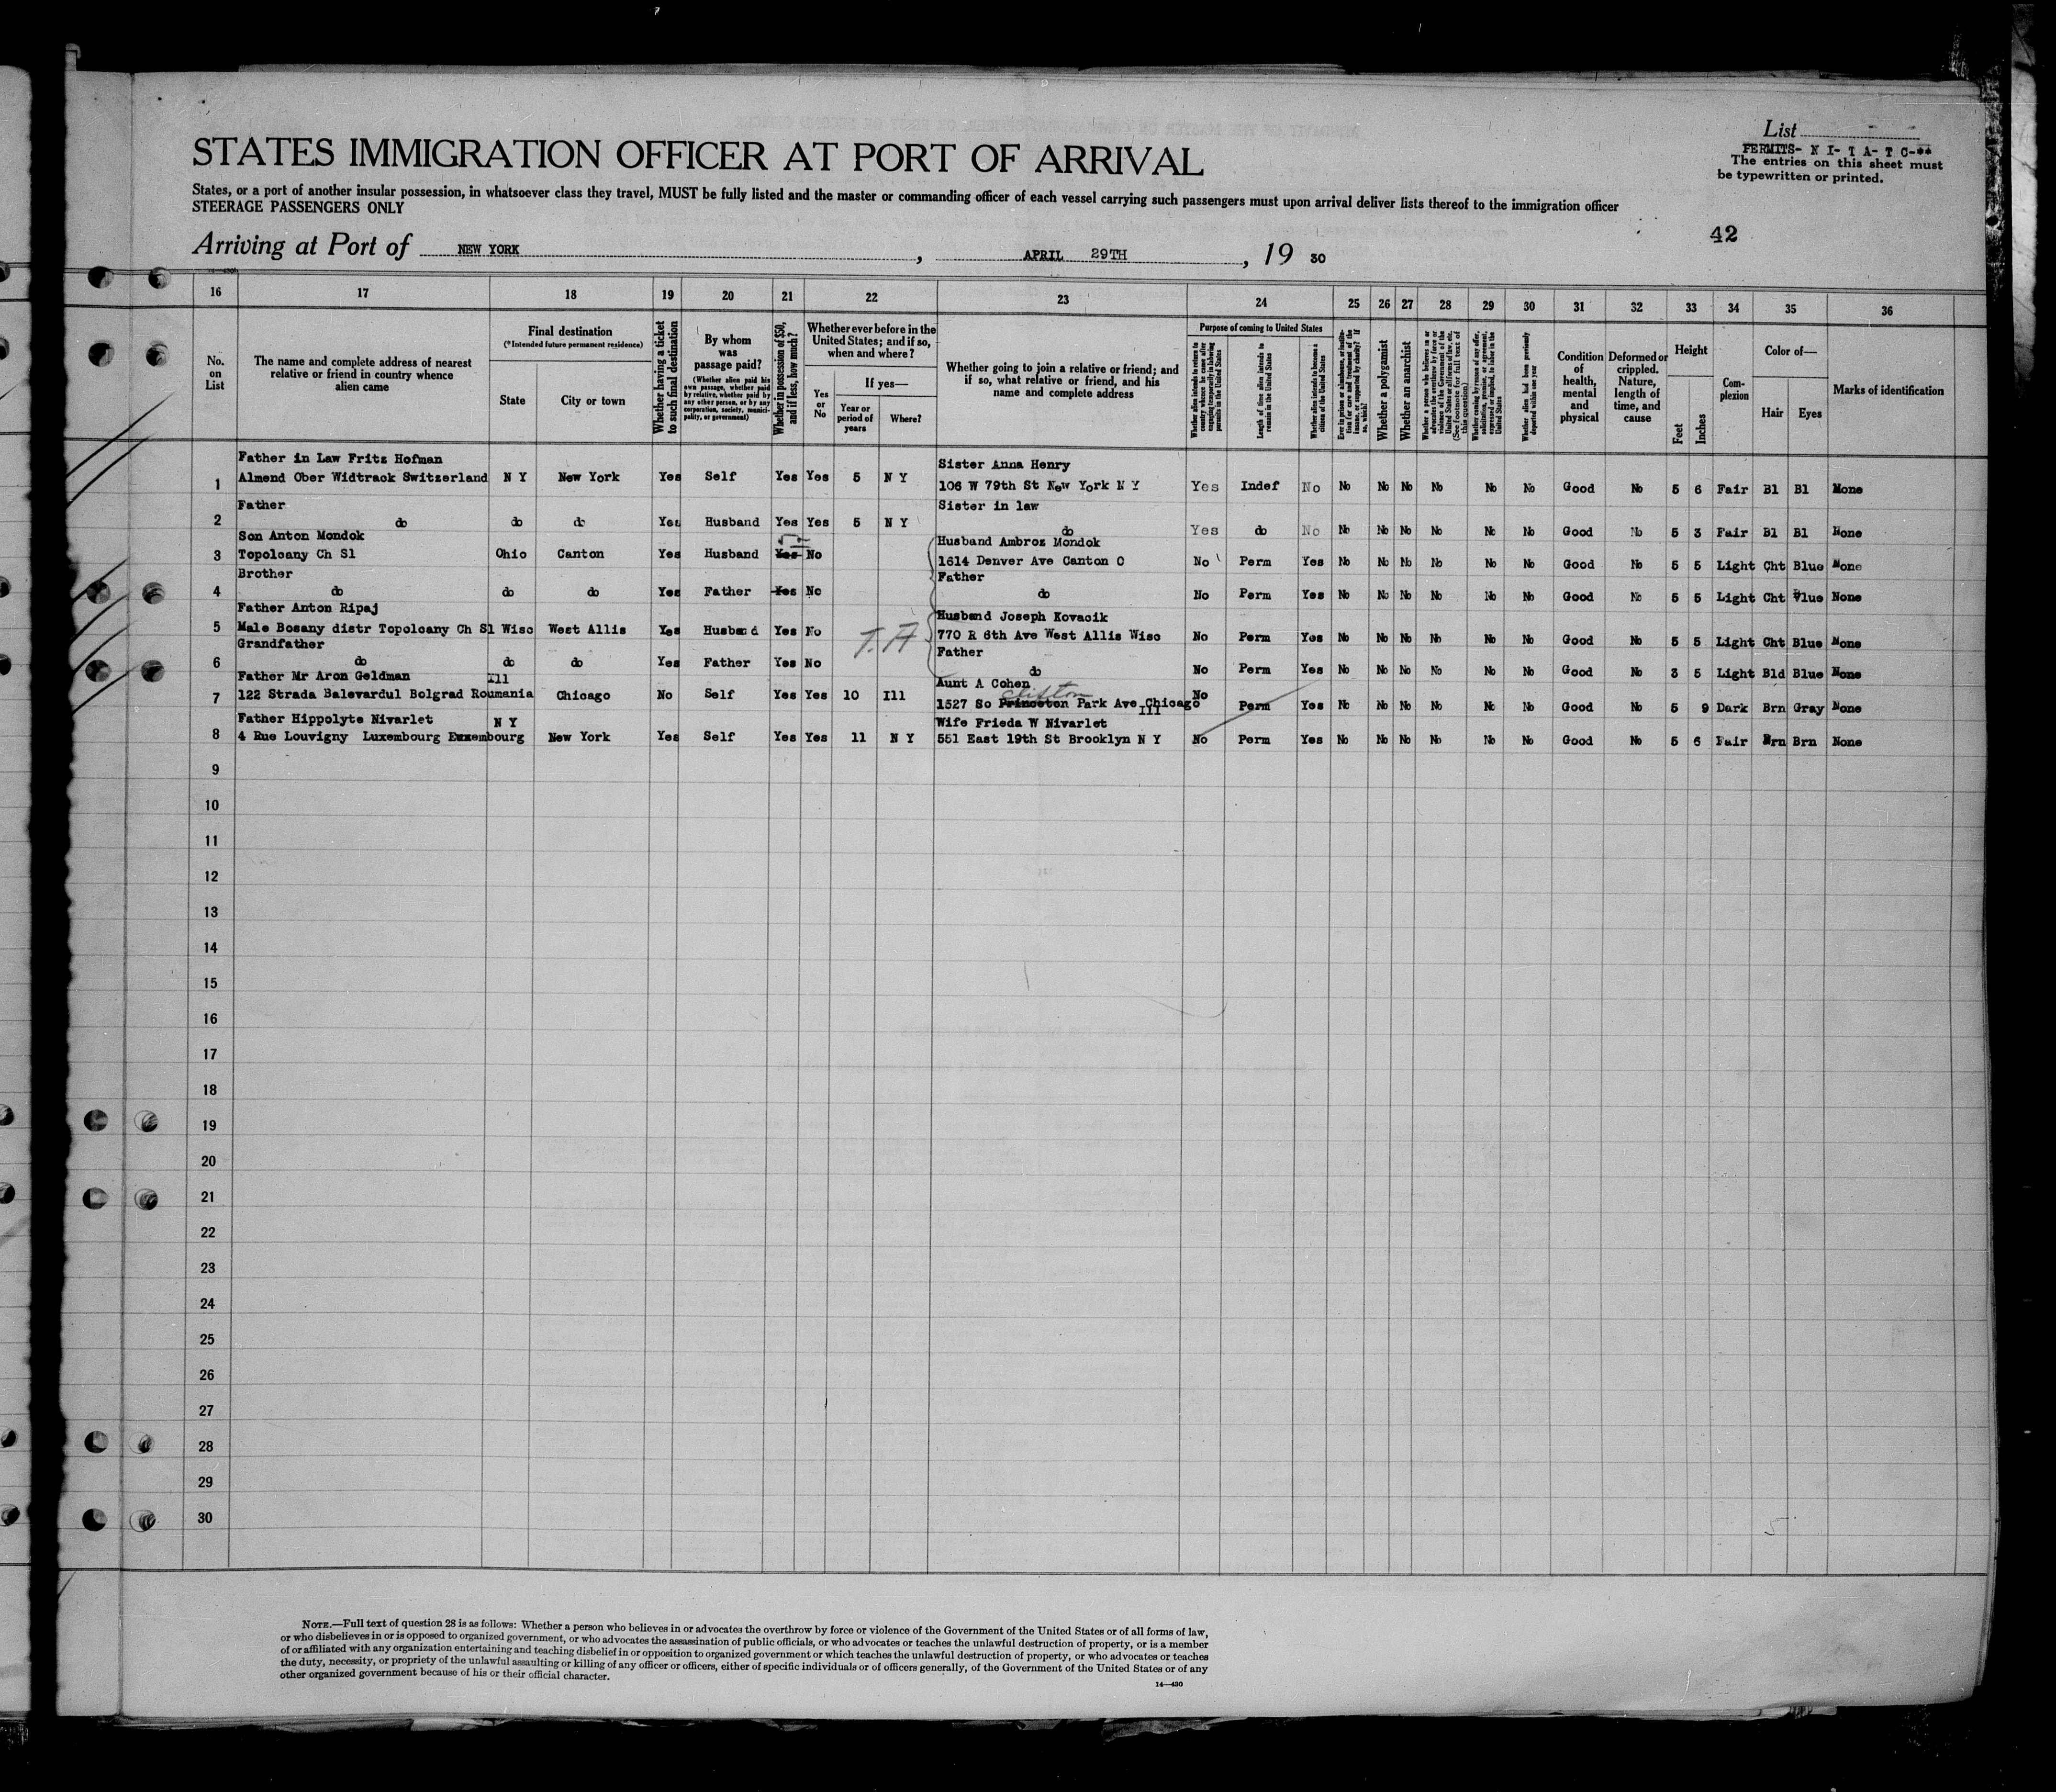 List
PERMITS- N I- T A- T C-**
The entries on this sheet must
be typewritten or printed.
STATES IMMIGRATION OFFICER AT PORT OF ARRIVAL
States, or a port of another insular possession, in whatsoever class they travel, MUST be fully listed and the master or commanding officer of each vessel carrying such passengers must upon arrival deliver lists thereof to the immigration officer
STEERAGE PASSENGERS ONLY
42
Arriving at Port of NEW YORK, APRIL 29TH, 19 30
16 17 18 19 20 21 22 23 24 25 26 27 28 29 30 31 32 33 34 35 36
No. on List
The name and complete address of nearest relative or friend in country whence alien came
Final destination
(*Intended future permanent residence)
State
City or town
Whether having a ticket to such final destination
By whom was passage paid?
(Whether alien paid his own passage, whether paid by relative, whether paid by any other person, or by any corporation, society, municipality, or government)
Whether in possession of $50, and if less, how much?
Whether ever before in the United States; and if so, when and where?
Yes or No
If yes—
Year or period of years
Where?
Whether going to join a relative or friend; and if so, what relative or friend, and his name and complete address
Purpose of coming to United States
Length of time alien intends to remain in the United States
Whether alien intends to become a citizen of the United States
Whether a polygamist
Whether an anarchist
(See footnote for full text of this question)
Whether alien had been previously deported within one year
Condition of health, mental and physical
Deformed or crippled. Nature, length of time, and cause
Height
Feet
Inches
Complexion
Color of—
Hair
Eyes
Marks of identification
Father in Law Fritz Hofman Sister Anna Henry
1 Almend Ober Widtrack Switzerland N Y New York Yes Self Yes Yes 5 N Y 106 W 79th St New York N Y Yes Indef No No No No No No No Good No 5 6 Fair Bl Bl None
Father Sister in law
2 do do do Yes Husband Yes Yes 5 N Y do Yes do No No No No No No No Good No 5 3 Fair Bl Bl None
Son Anton Mondok Husband Ambroz Mondok
3 Topolcany Ch Sl Ohio Canton Yes Husband Yes No 1614 Denver Ave Canton O No Perm Yes No No No No No No Good No 5 5 Light Cht Blue None
Brother Father
4 do do do Yes Father Yes No do No Perm Yes No No No No No No Good No 5 5 Light Cht Blue None
Father Anton Ripaj Husband Joseph Kovacik
5 Male Bosany distr Topolcany Ch Sl Wisc West Allis Yes Husband Yes No T.A 770 R 6th Ave West Allis Wisc No Perm Yes No No No No No No Good No 5 5 Light Cht Blue None
Grandfather Father
6 do do do Yes Father Yes No do No Perm Yes No No No No No No Good No 3 5 Light Bld Blue None
Father Mr Aron Geldman Ill Aunt A Cohen
7 122 Strada Balevardul Bolgrad Roumania Chicago No Self Yes Yes 10 Ill 1527 So Princeton Clifton Park Ave Chicago Ill No Perm Yes No No No No No No Good No 5 9 Dark Brn Gray None
Father Hippolyte Nivarlet N Y Wife Frieda W Nivarlet
8 4 Rue Louvigny Luxembourg Luxembourg New York Yes Self Yes Yes 11 N Y 551 East 19th St Brooklyn N Y No Perm Yes No No No No No No Good No 5 6 Fair Brn Brn None
9
10
11
12
13
14
15
16
17
18
19
20
21
22
23
24
25
26
27
28
29
30
5
NOTE.—Full text of question 28 is as follows: Whether a person who believes in or advocates the overthrow by force or violence of the Government of the United States or of all forms of law,
or who disbelieves in or is opposed to organized government, or who advocates the assassination of public officials, or who advocates or teaches the unlawful destruction of property, or is a member
of or affiliated with any organization entertaining and teaching disbelief in or opposition to organized government or which teaches the unlawful destruction of property, or who advocates or teaches
the duty, necessity, or propriety of the unlawful assaulting or killing of any officer or officers, either of specific individuals or of officers generally, of the Government of the United States or of any
other organized government because of his or their official character.
14—430